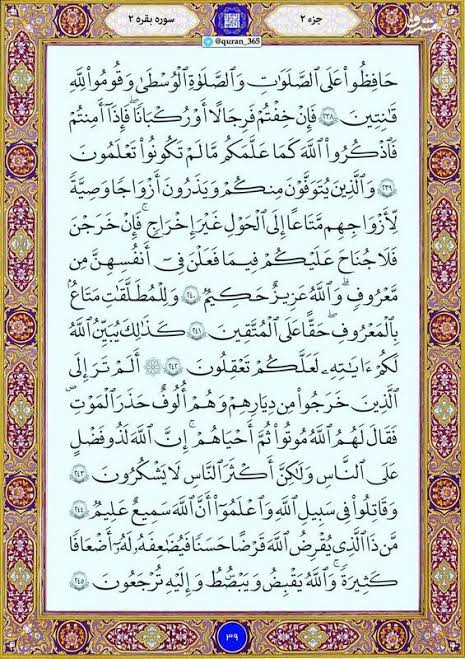 جزء ۲
سوره بقره ۲
@quran_365
حَٰفِظُواْ عَلَى ٱلصَّلَوَٰتِ وَٱلصَّلَوٰةِ ٱلۡوُسۡطَىٰ وَقُومُواْ لِلَّهِ
قَٰنِتِينَ ۝٢٣٨ فَإِنۡ خِفۡتُمۡ فَرِجَالًا أَوۡ رُكۡبَانٗاۖ فَإِذَآ أَمِنتُمۡ
فَٱذۡكُرُواْ ٱللَّهَ كَمَا عَلَّمَكُم مَّا لَمۡ تَكُونُواْ تَعۡلَمُونَ
۝٢٣٩ وَٱلَّذِينَ يُتَوَفَّوۡنَ مِنكُمۡ وَيَذَرُونَ أَزۡوَٰجٗا وَصِيَّةٗ
لِّأَزۡوَٰجِهِم مَّتَٰعًا إِلَى ٱلۡحَوۡلِ غَيۡرَ إِخۡرَاجٖۚ فَإِنۡ خَرَجۡنَ
فَلَا جُنَاحَ عَلَيۡكُمۡ فِي مَا فَعَلۡنَ فِيٓ أَنفُسِهِنَّ مِن
مَّعۡرُوفٖۗ وَٱللَّهُ عَزِيزٌ حَكِيمٞ ۝٢٤٠ وَلِلۡمُطَلَّقَٰتِ مَتَٰعُۢ
بِٱلۡمَعۡرُوفِۖ حَقًّا عَلَى ٱلۡمُتَّقِينَ ۝٢٤١ كَذَٰلِكَ يُبَيِّنُ ٱللَّهُ
لَكُمۡ ءَايَٰتِهِۦ لَعَلَّكُمۡ تَعۡقِلُونَ ۝٢٤٢ ۞ أَلَمۡ تَرَ إِلَى
ٱلَّذِينَ خَرَجُواْ مِن دِيَٰرِهِمۡ وَهُمۡ أُلُوفٌ حَذَرَ ٱلۡمَوۡتِ
فَقَالَ لَهُمُ ٱللَّهُ مُوتُواْ ثُمَّ أَحۡيَٰهُمۡۚ إِنَّ ٱللَّهَ لَذُو فَضۡلٍ
عَلَى ٱلنَّاسِ وَلَٰكِنَّ أَكۡثَرَ ٱلنَّاسِ لَا يَشۡكُرُونَ ۝٢٤٣
وَقَٰتِلُواْ فِي سَبِيلِ ٱللَّهِ وَٱعۡلَمُوٓاْ أَنَّ ٱللَّهَ سَمِيعٌ عَلِيمٞ ۝٢٤٤
مَّن ذَا ٱلَّذِي يُقۡرِضُ ٱللَّهَ قَرۡضًا حَسَنٗا فَيُضَٰعِفَهُۥ لَهُۥٓ أَضۡعَافٗا
كَثِيرَةٗۚ وَٱللَّهُ يَقۡبِضُ وَيَبۡصُۜطُ وَإِلَيۡهِ تُرۡجَعُونَ ۝٢٤٥
۳۹